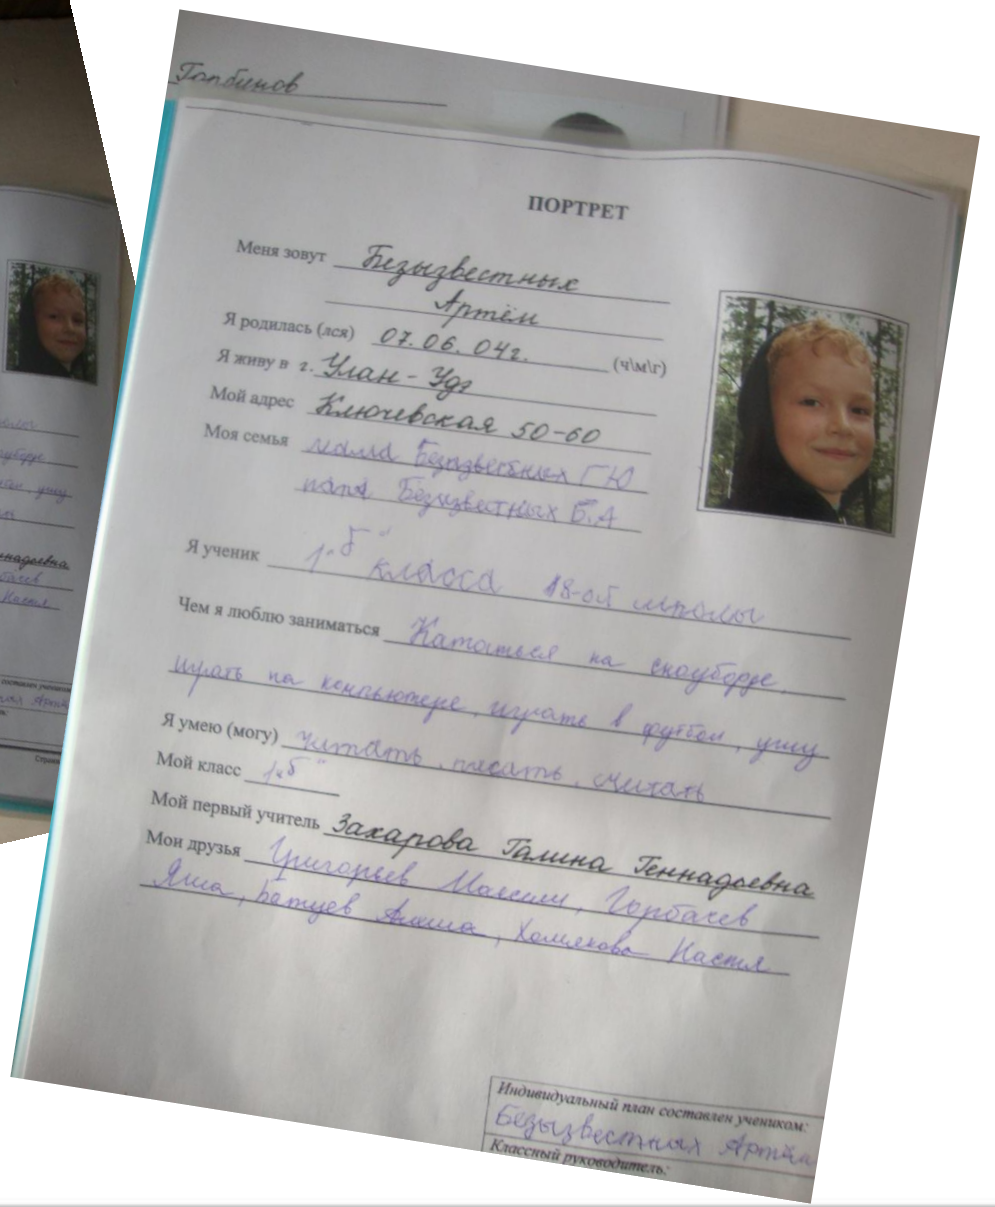 Горбунов
ПОРТРЕТ
Меня зовут Безызвестных
Артём
Я родилась (лся) 07.06.04г. (ч\м\г)
Я живу в г. Улан-Удэ
Мой адрес Ключевская 50-60
Моя семья мама Безызвестных Г Ю
папа Безызвестных Б.А
Я ученик 1 "б" класса 18-ой школы
Чем я люблю заниматься Кататься на сноуборде,
играть на компьютере, играть в футбол, ушу
Я умею (могу) читать, писать, считать
Мой класс 1 "б"
Мой первый учитель Захарова Галина Геннадьевна
Мои друзья Григорьев Максим, Горбачев
Яша, Батуев Алёша, Хомякова Настя
Индивидуальный план составлен учеником:
Безызвестных Артём
Классный руководитель: